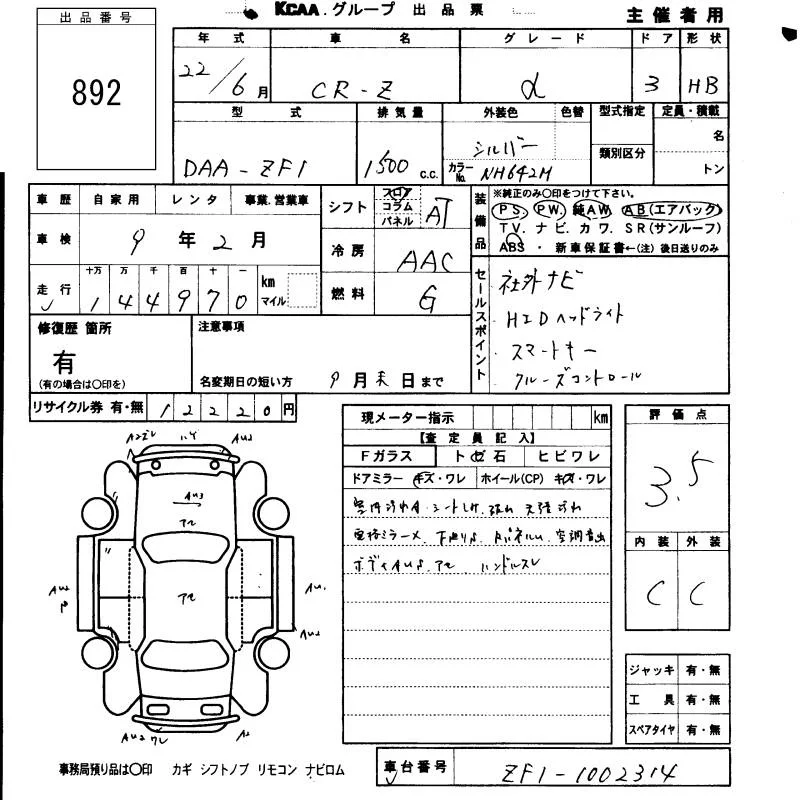 KCAA.グループ 出品票
主催者用
出品番号
892
年式 車名 グレード ドア 形状
22/6月 CR-Z α 3 HB
型式 排気量 外装色 色替 型式指定 定員・積載
DAA-ZF1 1500 c.c. シルバー
カラーNo. NH642M
類別区分
名
トン
車歴 自家用 レンタ 事業.営業車
車検 9年2月
走行 十万 万 千 百 十 一
144970 km マイル
シフト フロア コラム パネル AT
冷房 AAC
燃料 G
装備品
※純正のみ○印をつけて下さい。
PS. PW. 純AW. AB(エアバック)
TV. ナビ. カワ. SR(サンルーフ)
ABS ・ 新車保証書←(注) 後日送りのみ
セールスポイント
社外ナビ
HIDヘッドライト
スマートキー
クルーズコントロール
修復歴 箇所
有
(有の場合は○印を)
注意事項
名変期日の短い方 9月末日まで
リサイクル券 有・無 12220円
現メーター指示 km
【査定員記入】
Fガラス トビ石 ヒビワレ
ドアミラー キズ・ワレ ホイール(CP) キズ・ワレ
ハンドルスレ
評価点
3.5
内装 外装
C C
ジャッキ 有・無
工具 有・無
スペアタイヤ 有・無
A2
AU3
AU2
AU1
AU2
A2
事務局預り品は○印 カギ シフトノブ リモコン ナビロム
車台番号 ZF1-1002314